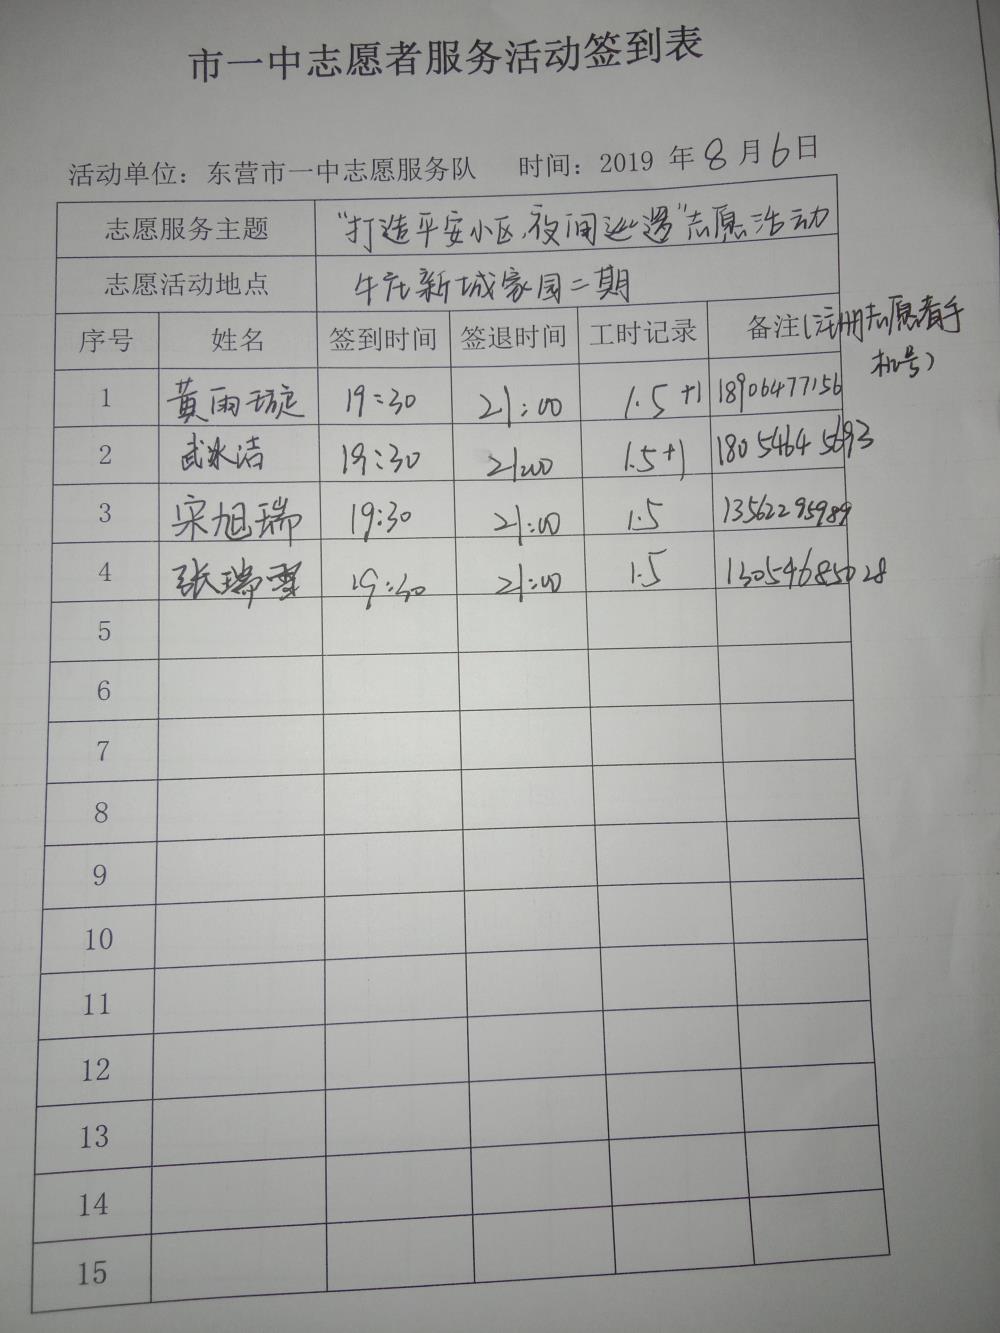 市一中志愿者服务活动签到表
活动单位：东营市一中志愿服务队 时间：2019 年 8 月 6 日
志愿服务主题 “打造平安小区，夜间巡逻”志愿活动
志愿活动地点 牛庄新城家园二期
序号 姓名 签到时间 签退时间 工时记录 备注（注册志愿者手
机号）
1 黄雨琁 19:30 21:00 1.5+1 18906477156
2 武冰洁 19:30 21:00 1.5+1 18054645693
3 宋旭瑞 19:30 21:00 1.5 13562295989
4 张瑞雪 19:30 21:00 1.5 13054685028
5
6
7
8
9
10
11
12
13
14
15